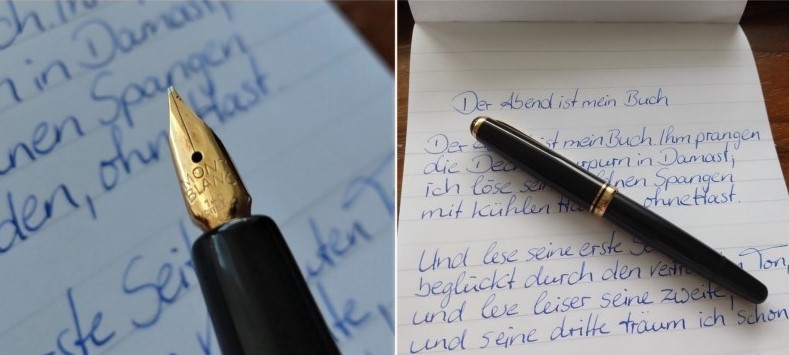 ch. Ihm
n in Damast,
nen Spangen
den, ohne Hast.
erste Seit
ten T
MONT
BLANC
Der Abend ist mein Buch
Der ist mein Buch. Ihm prangen
die purpurn in Damast;
ich löse seine Spangen
mit kühlen ohne Hast.
Und lese seine erste
beglückt durch den Ton,
und lese leiser seine zweite,
und seine dritte träum ich schon